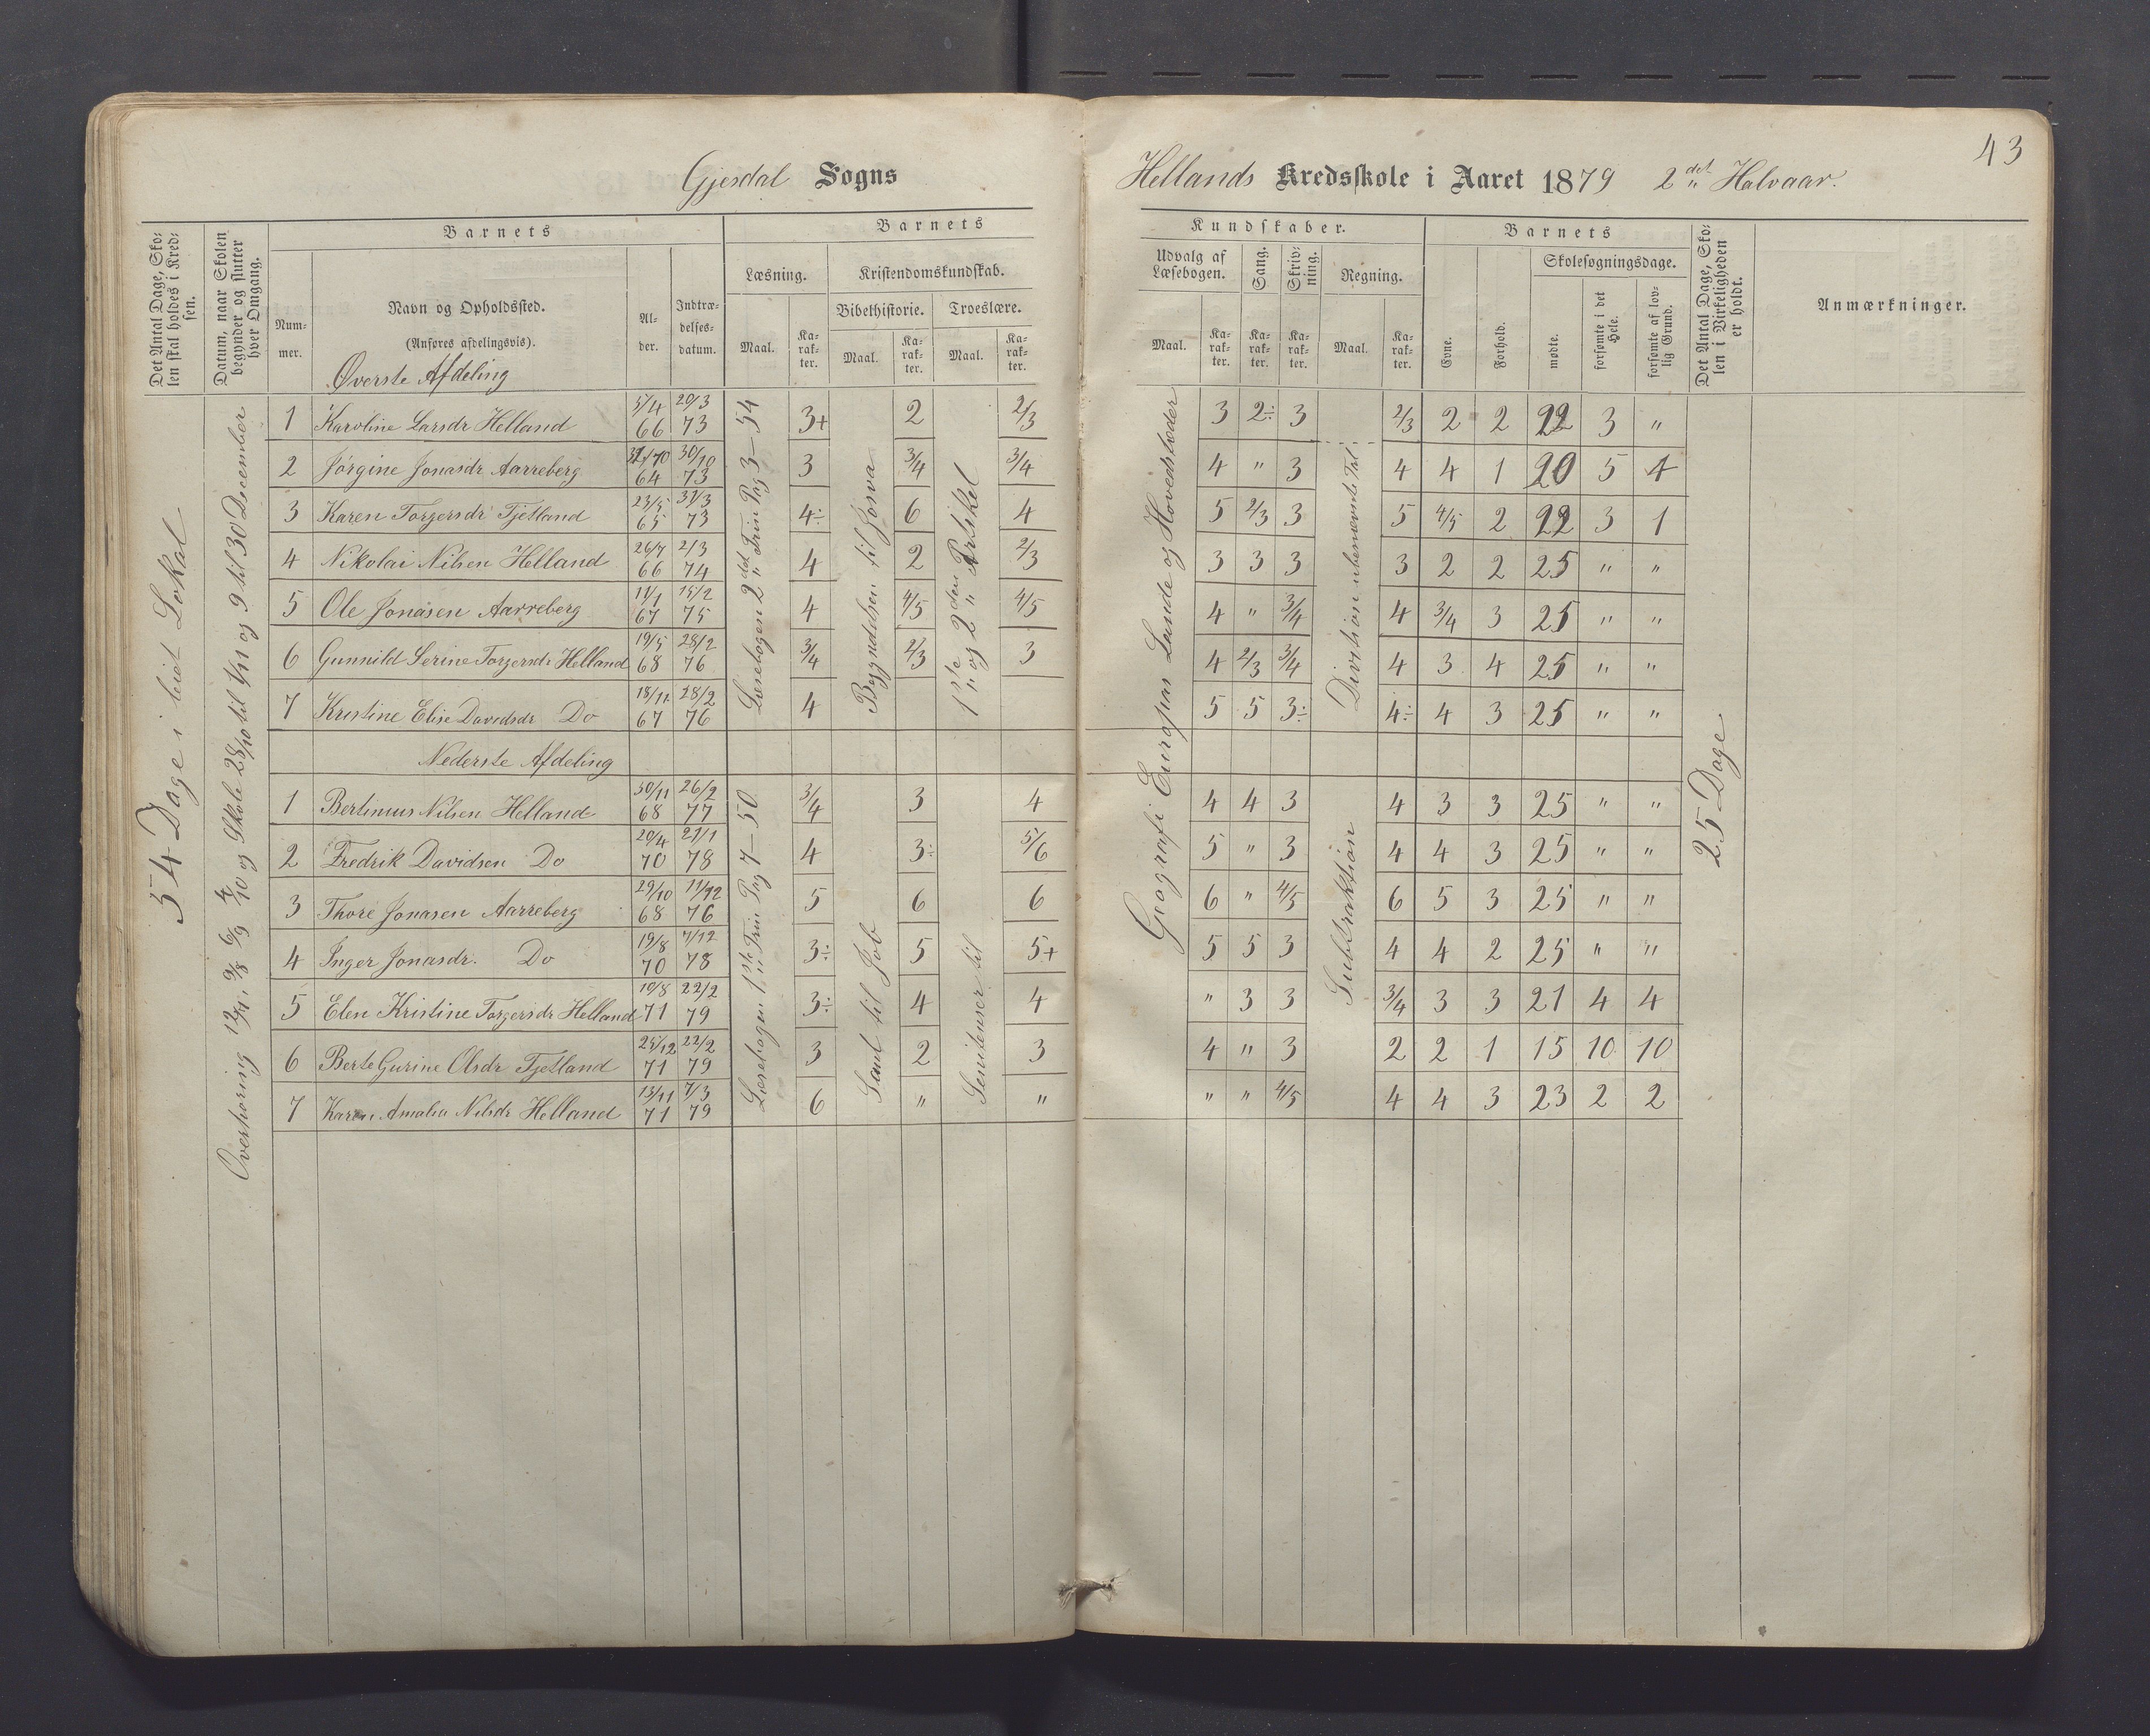 43
Gjesdal Sogns Hellands Kredsskole i Aaret 1879 2det Halvaar.
Det Antal Dage, Skolen skal holdes i Kredsen.
Datum, naar Skolen begynder og slutter hver Omgang.
Barnets
Nummer.
Navn og Opholdssted.
(Anføres afdelingsvis).
Alder.
Indtrædelsesdatum.
Barnets Kundskaber.
Læsning.
Maal.
Karakter.
Kristendomskundskab.
Bibelhistorie.
Maal.
Karakter.
Troeslære.
Maal.
Karakter.
Udvalg af Læsebogen.
Maal.
Karakter.
Sang.
Karakter.
Skrivning.
Karakter.
Regning.
Maal.
Karakter.
Barnets
Evne.
Forhold.
Skolesøgningsdage.
mødte.
forsømte i det Hele.
forsømte af lovlig Grund.
Det Antal Dage, Skolen i Virkeligheden er holdt.
Anmærkninger.
54 Dage i leiet Lokal
Overhøring 12/7, 9/8 6/9 4/10 og Skole 28/10 til 1/11 og 9 til 30 December
Læsebogen 2det Trin Pag 3–54
Begyndelsen til Josva
1ste og 2den Artikel
Geografi Europas Lande og Hovedstæder
Division ubenævnte Tal
25 Dage
Øverste Afdeling
1 Karoline Larsdr Helland 5/4 66 20/3 73 3+ 2 2/3 3 2÷ 3 2/3 2 2 22 3 "
2 Jørgine Jonasdr Aarreberg 64 30/10 73 3 3/4 3/4 4 " 3 4 4 1 20 5 4
3 Karen Torgersdr Tjetland 23/5 65 31/3 73 4÷ 6 4 5 2/3 3 5 4/5 2 22 3 1
4 Nikolai Nilsen Helland 26/7 66 2/3 74 4 2 2/3 3 3 3 3 2 2 25 " "
5 Ole Jonasen Aarreberg 11/1 67 15/2 75 4 4/5 4/5 4 " 3/4 4 3/4 3 25 " "
6 Gunnild Serine Torgersdr Helland 19/5 68 28/2 76 3/4 2/3 3 4 2/3 3/4 4 3 4 25 " "
7 Kristine Elise Davidsdr Do 18/11 67 28/2 76 4 5 5 3÷ 4÷ 4 3 25 " "
Nederste Afdeling
Læsebogen 1ste Trin Pag 7–50
Saul til Job
Senitenser til
Subtraktion
1 Bertinius Nilsen Helland 30/11 68 26/2 77 3/4 3 4 4 4 3 4 3 3 25 " "
2 Fredrik Davidsen Do 20/4 70 21/1 78 4 3÷ 5/6 5 " 3 4 4 3 25 " "
3 Thore Jonasen Aarreberg 29/10 68 11/12 76 5 6 6 6 " 4/5 6 5 3 25 " "
4 Inger Jonasdr. Do 19/8 70 7/12 78 3÷ 5 5+ 5 5 3 4 4 2 25 " "
5 Elen Kristine Torgersdr Helland 10/8 71 22/2 79 3÷ 4 4 " 3 3 3/4 3 3 21 4 4
6 Berte Gurine Olsdr Tjetland 25/12 71 22/2 79 3 2 3 4 " 3 2 2 1 15 10 10
7 Karen Amalia Nilsdr Helland 13/11 71 7/3 79 6 " " " " 4/5 4 4 3 23 2 2